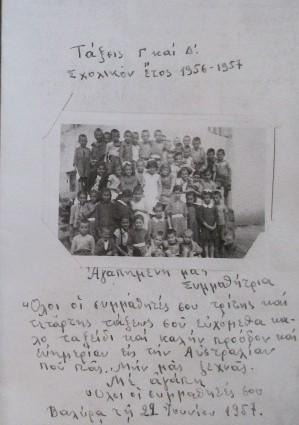 Τάξεις Γ καί Δ'.
Σχολικόν Ἔτος 1956-1957
Ἀγαπημένη μας
Συμμαθήτρια
"Ὅλοι οἱ συμμαθητές σου τρίτης καί
τετάρτης τάξεως σοῦ εὐχόμεθα κα-
λο ταξείδι καί καλήν πρόοδον καί
εὐημερίαν εἰς την Αὐστραλίαν
ποῦ πᾶς. Μήν μᾶς ξεχνᾶς.
Μέ ἀγάπη
Ὅλοι οἱ συμμαθητές σου
Βαλύρα τῇ 22 Ἰουνίου 1957.